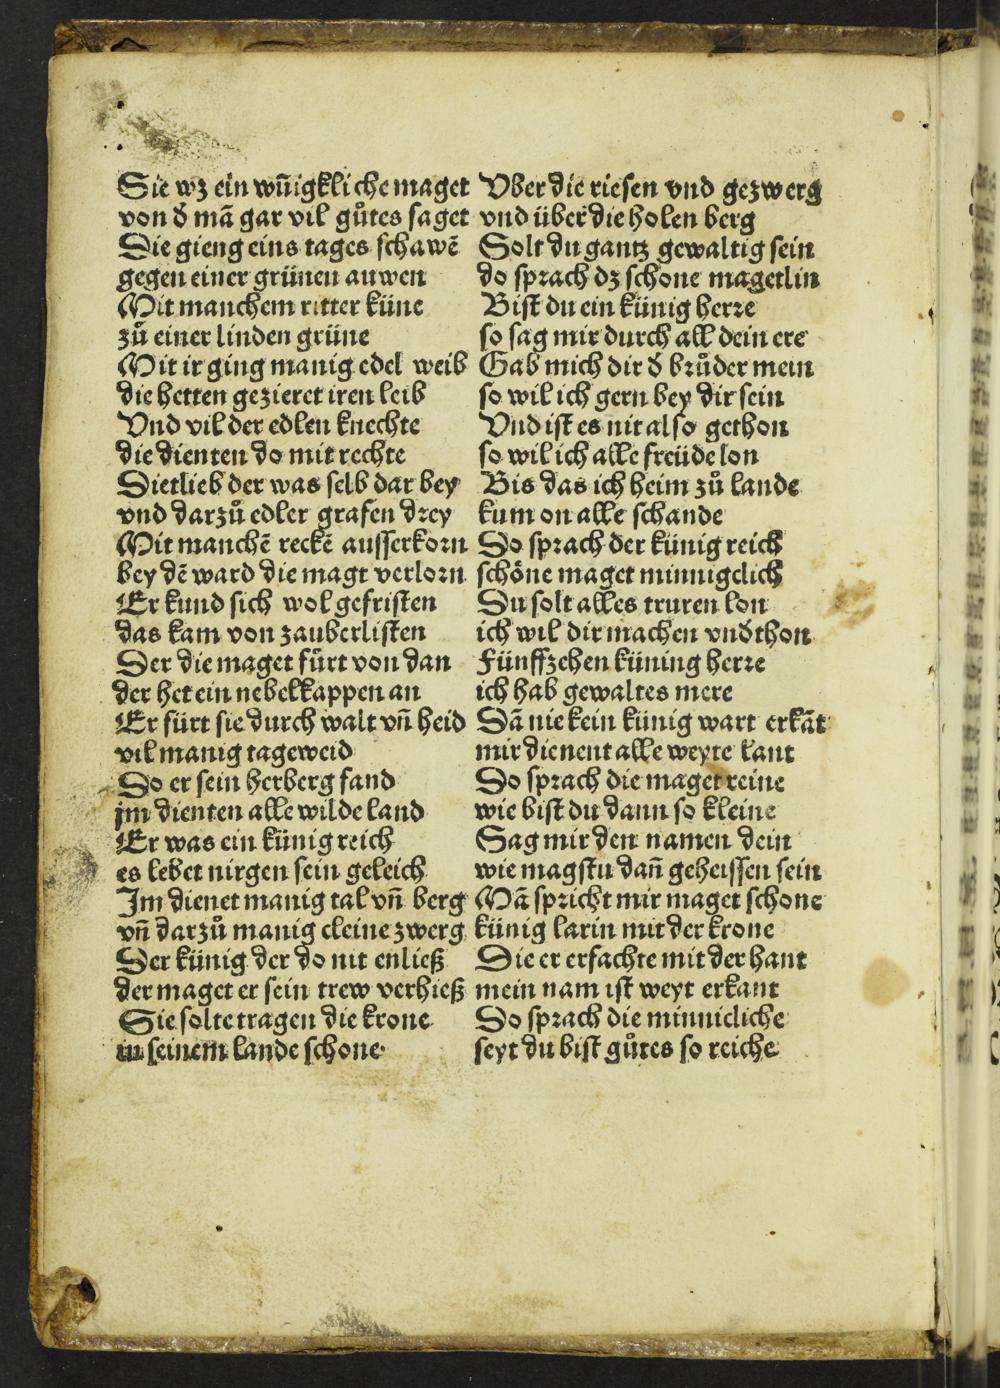 Sie wz ein wūigkliche maget
von d̕ mā gar vil gůtes saget
Die gieng eins tages schawē
gegen einer grünen auwen
Mit manchem ritter küne
zů einer linden grüne
Mit ir ging manig edel weib
die hetten gezieret iren leib
Vnd vil der edlen knechte
die dienten do mit rechte
Dietlieb der was selb dar bey
vnd darzů edler grafen drey
Mit manchē reckē ausserkorn
bey dē ward die magt verlorn
Er kund sich wol gefristen
das kam von zauberlisten
Der die maget fůrt von dan
der het ein nebelkappen an
Er fürt sie durch walt vñ heid
vil manig tageweid
Do er sein herberg fand
jm dienten alle wilde land
Er was ein künig reich
es lebet nirgen sein geleich
Im dienet manig tal vñ berg
vñ darzů manig cleine zwerg
Der künig der do nit enließ
der maget er sein trew verhieß
Sie solte tragen die krone
in seinem lande schone
Vber die riesen vnd gezwerg
vnd über die holen berg
Solt du gantz gewaltig sein
do sprach dz schone magetlin
Bist du ein künig herre
so sag mir durch all dein ere
Gab mich dir d̕ brůder mein
so wil ich gern bey dir sein
Vnd ist es nit also gethon
so wil ich alle freüde lon
Bis das ich heim zů lande
kum on alle schande
Do sprach der künig reich
schöne maget minnigclich
Du solt alles truren lon
ich wil dir machen vnd̕thon
Fünffzehen küning herre
ich hab gewaltes mere
Dā nie kein künig wart erkāt
mir dienent alle weyte lant
Do sprach die maget reine
wie bist du dann so kleine
Sag mir den namen dein
wie magstu dañ geheissen sein
Mā spricht mir maget schone
künig larin mit der krone
Die er erfachte mit der hant
mein nam ist weyt erkant
Do sprach die minnicliche
seyt du bist gůtes so reiche